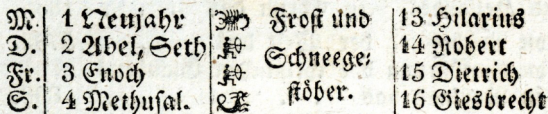 M. 1 Neujahr Frost und 13 Hilarius
D. 2 Abel, Seth Schneege= 14 Robert
Fr. 3 Enoch stöber. 15 Dietrich
S. 4 Methusal. 16 Giesbrecht